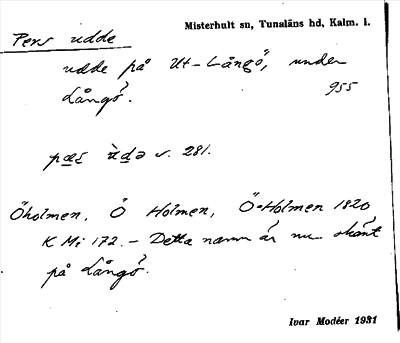 Misterhult sn, Tunaläns hd, Kalm. l.
Pers udde
udde på Ut-Långö, under
Långö.
955
v. 281.
Öholmen, Ö Holmen, Ö-Holmen 1820
K Mi 172. - Detta namn är nu okänt
på Långö.
Ivar Modéer 1931